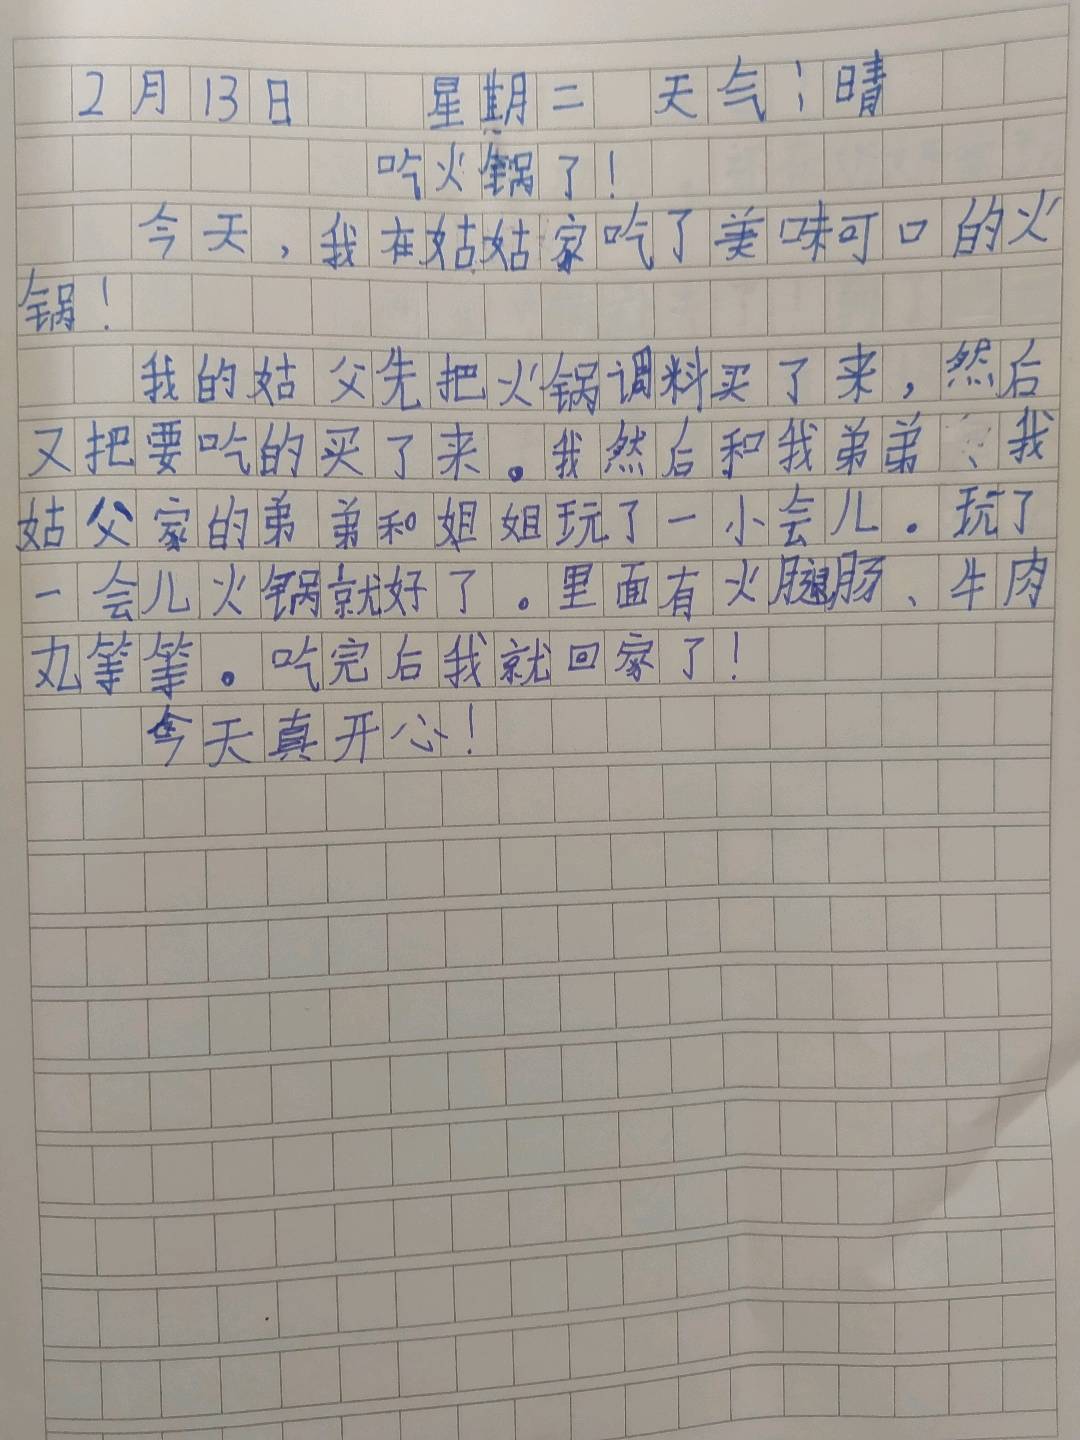 2月13日 星期二 天气:晴
吃火锅了!
今天,我在姑姑家吃了美味可口的火
锅!
我的姑父先把火锅调料买了来,然后
又把要吃的买了来。我然后和我弟弟、我
姑父家的弟弟和姐姐玩了一小会儿.玩了
一会儿火锅就好了。里面有火腿肠、牛肉
丸等等。吃完后我就回家了!
今天真开心!